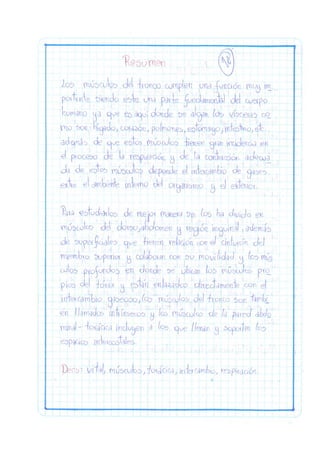 Resumen
Los músculos del tronco cumplen una función muy im
portante siendo este una parte fundamental del cuerpo
humano ya que es aquí donde se alojan las vísceras co
mo son: Hígado, corazón, pulmones, estómago, intestino, etc.
además de que estos músculos tienen gran incidencia en
el proceso de la respiración y de la contracción adecua
da de estos músculos depende el intercambio de gases
entre el ambiente interno del organismo y el exterior.
Para estudiarlos de mejor manera se los ha divido en
músculos del dorso, abdomen y región inguinal, además
de superficiales que tienen relación con el cinturón del
miembro superior y colaboran con su movilidad y los mús
culos profundos en donde se ubican los músculos pro
pios del tórax y están enlazados directamente con el
intercambio gaseoso, los músculos del tronco son tambi
en llamados intrínsecos y los músculos de la pared abdo
minal - torácica incluyen a los que llenan y soportan los
espacios intercostales.
Decs: vital, músculos, torácica, intercambio, respiración.